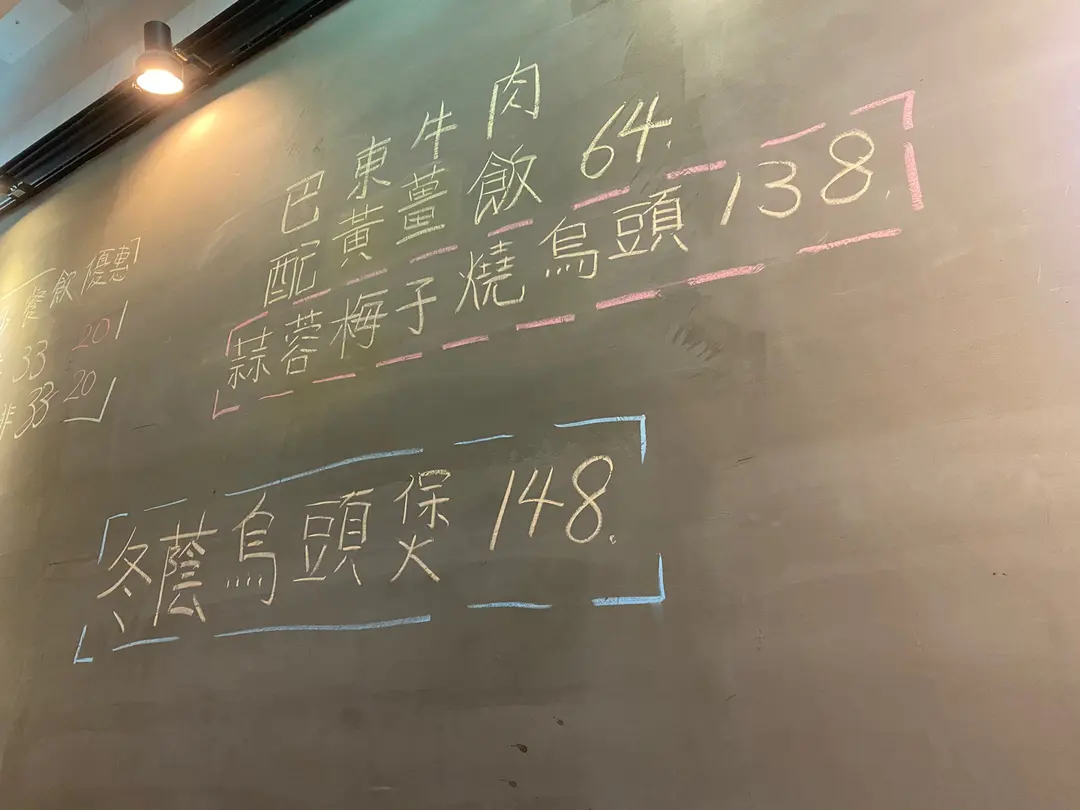 餐飲優惠
33 20
33 20
巴東牛肉
配黃薑飯 64.
蒜蓉梅子燒烏頭 138.
冬蔭烏頭煲 148.